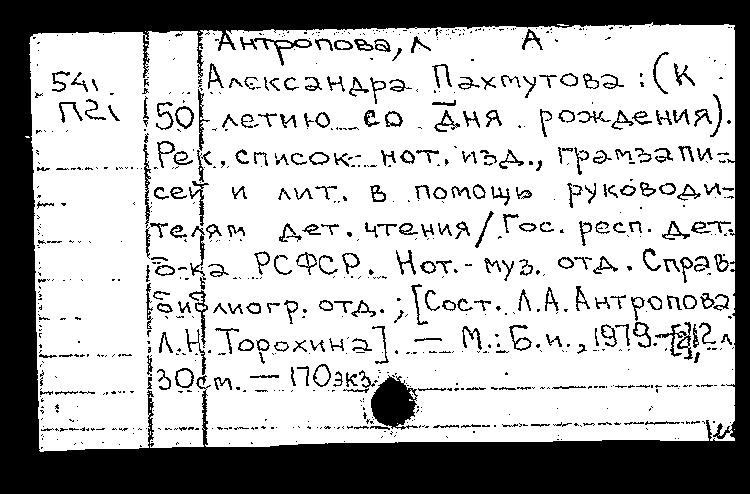 Антропова, Л А.
54, Александра Пахмутова : (К
П21 50-летию со дня рождения).
Рек. список нот. изд., грамзапи-
сей и лит. в помощь руководи-
телям дет. чтения / Гос. респ. дет.
б-ка РСФСР. Нот.-муз. отд. Справ.-
библиогр. отд. ; [Сост. Л.А. Антропова,
Л.Н. Торохина]. — М.: Б.и., 1979. —
30 см. — 170 экз.